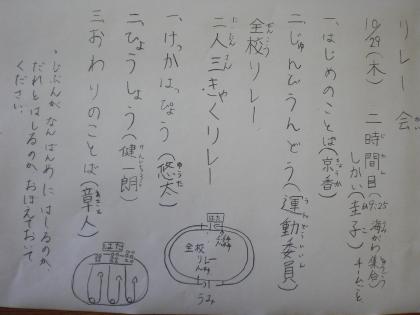 リレー会
10/29(木) 二時間目(9:25 海がわ集合)
しかい(圭子) チームごと
一、はじめのことば(京香)
二、じゅんびうんどう(運動委員)
全校リレー
二人三きゃくリレー
一、けっかはっぴょう(悠太)
二、ひょうしょう(健一朗)
三、おわりのことば(章人)
・じぶんが、なんばんめにはしるのか、
だれとはしるのか、おぼえておいて
ください。
はた
全校
リレー
うみ
はた